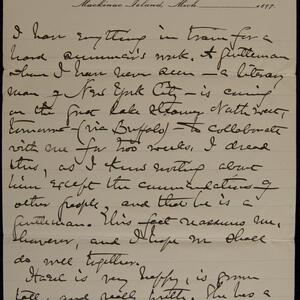 Mackinac Island, Mich. 189
I have everything in train for a
hard summer's work. A gentleman
whom I have never seen — a literary
man of New York City — is coming
on the first Lake Steamer
tomorrow (via Buffalo) — to collaborate
with me for two weeks. I dread
this, as I know nothing about
him except the commendations of
other people, and that he is a
gentleman. This fact reassures me,
however, and I hope we shall
do well together.
Hazel is very happy, is grown
tall, and really pretty. She has a